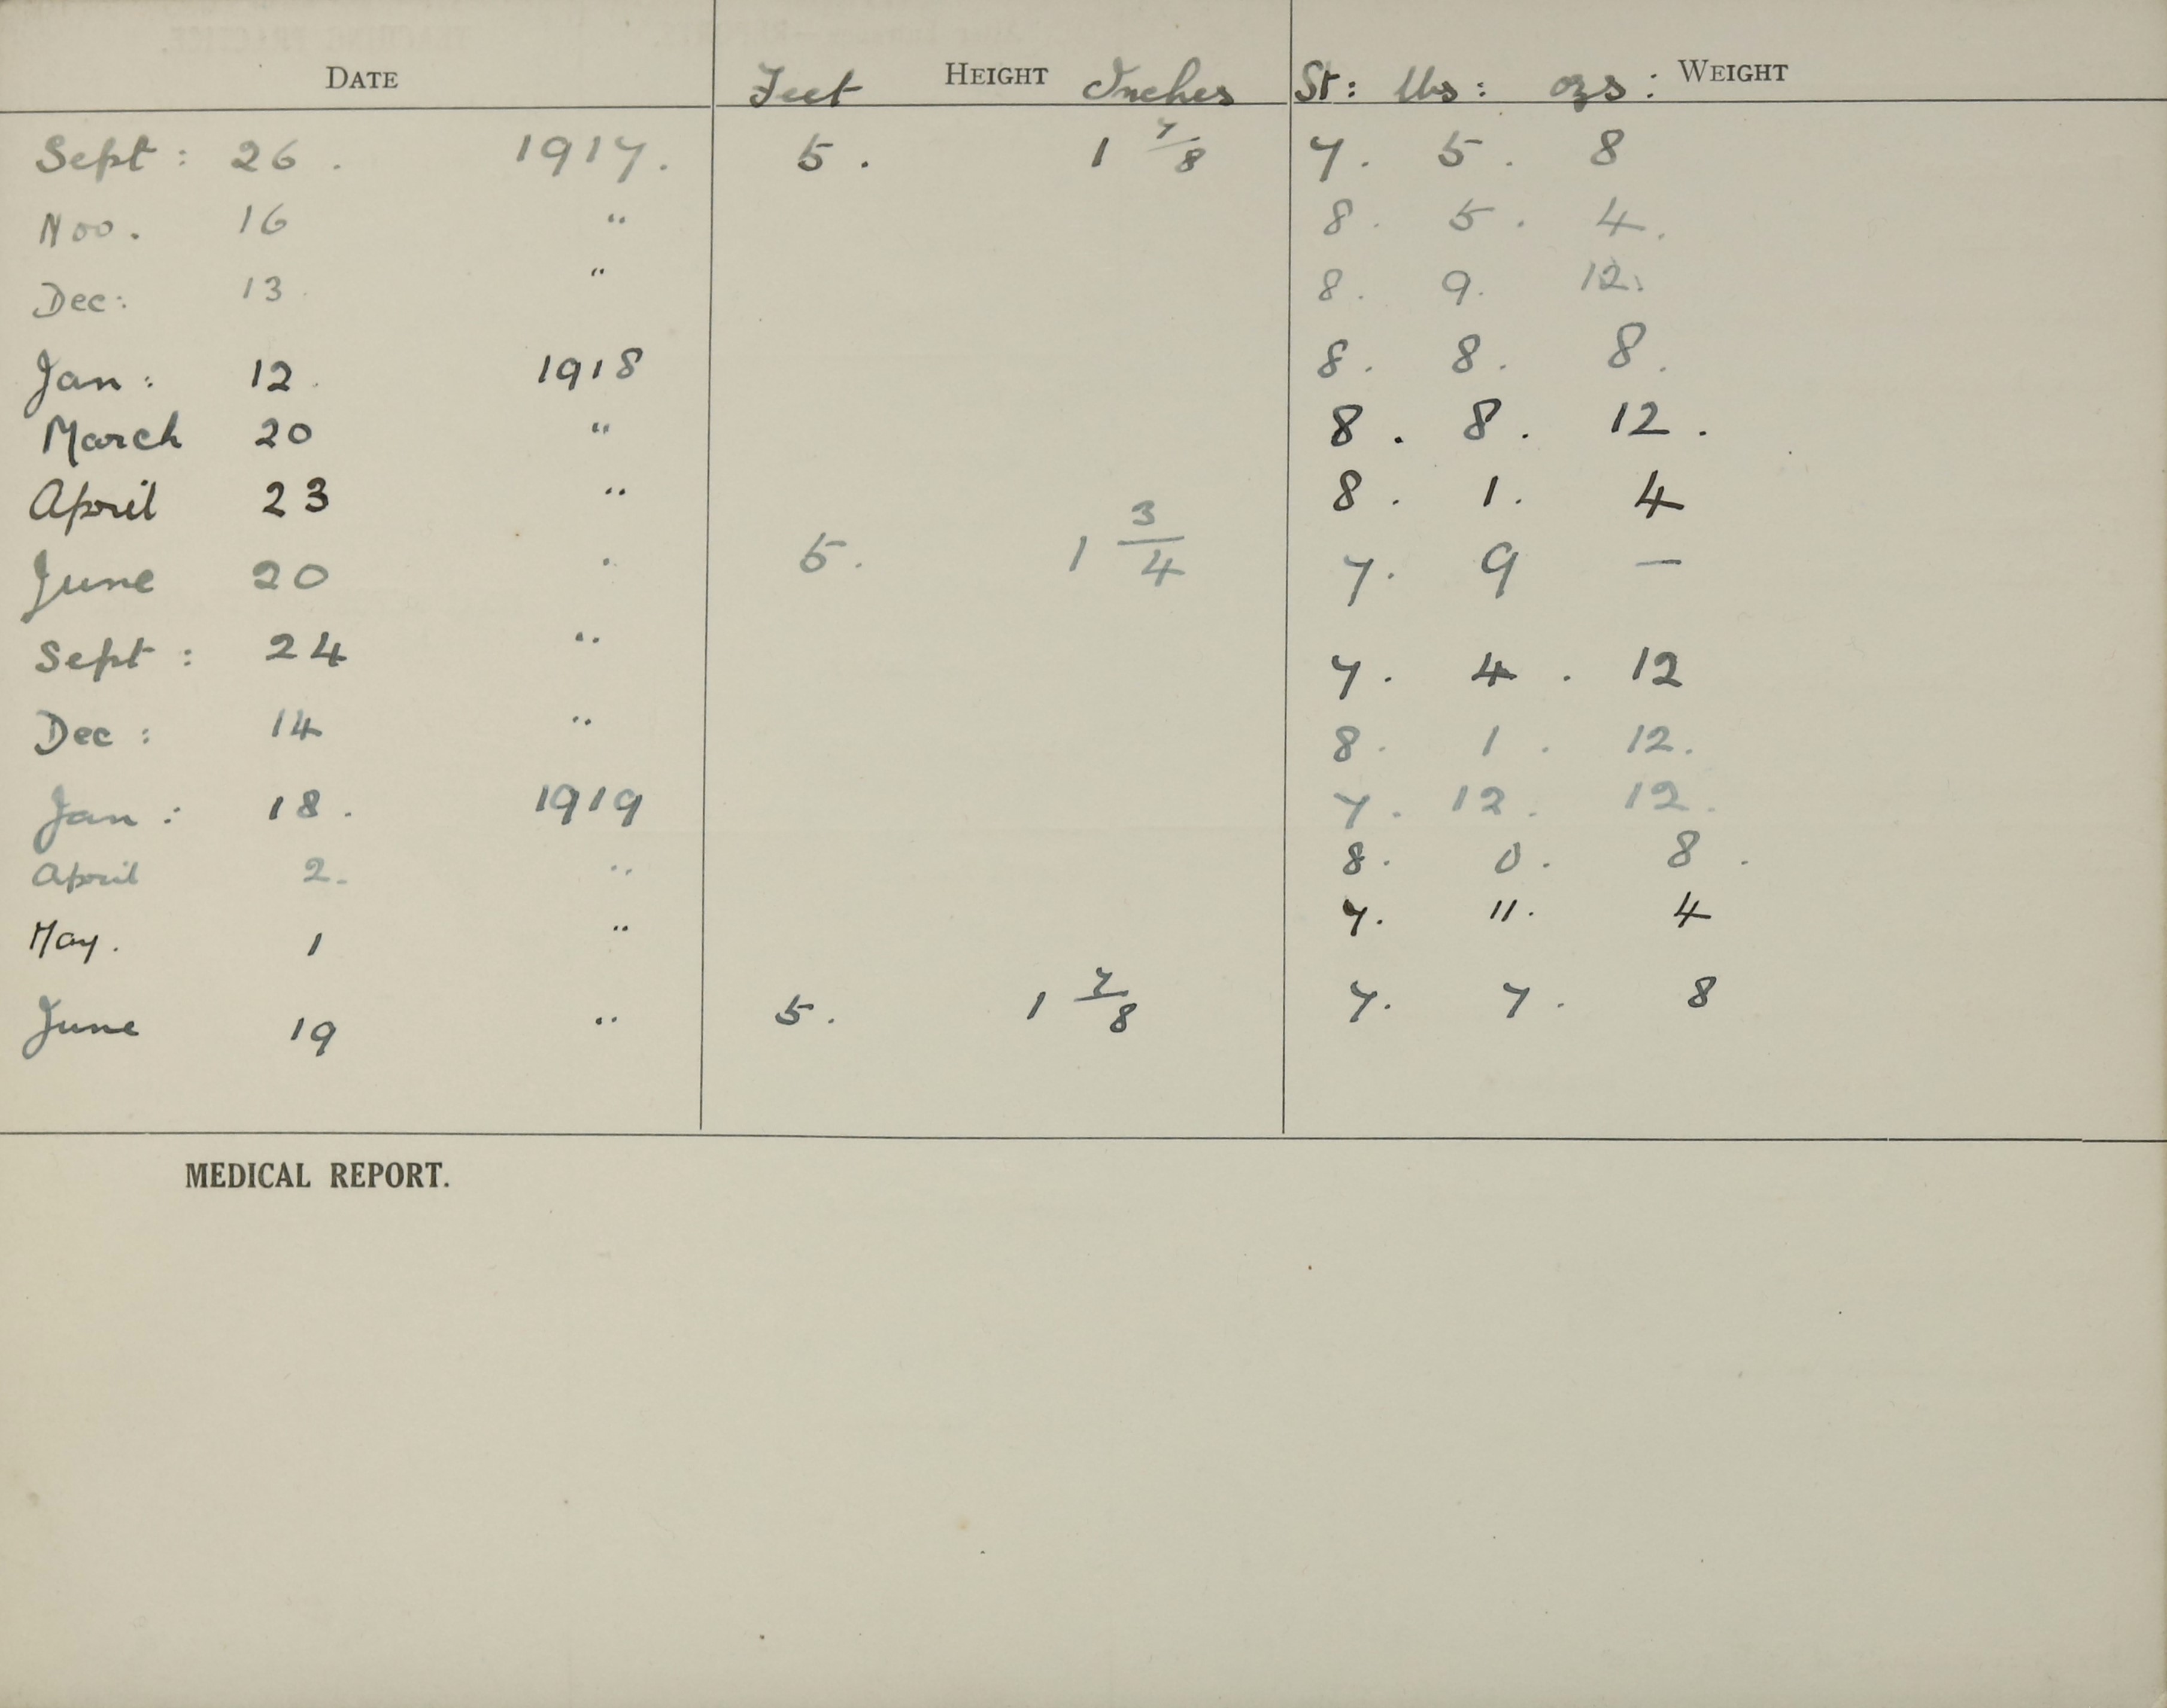 DATE Feet HEIGHT Inches St: lbs: ozs: WEIGHT
Sept: 26. 1917. 5. 1 7/8 7. 5. 8
Nov. 16 " 8. 5. 4.
Dec: 13. " 8. 9. 12.
Jan: 12. 1918 8. 8. 8.
March 20 " 8. 8. 12.
April 23 " 8. 1. 4
June 20 " 5. 1 3/4 7. 9 —
Sept: 24 " 7. 4. 12
Dec: 14 " 8. 1. 12.
Jan: 18. 1919 7. 12. 12.
April 2. " 8. 0. 8.
May. 1 " 7. 11. 4
June 19 " 5. 1 7/8 7. 7. 8
MEDICAL REPORT.